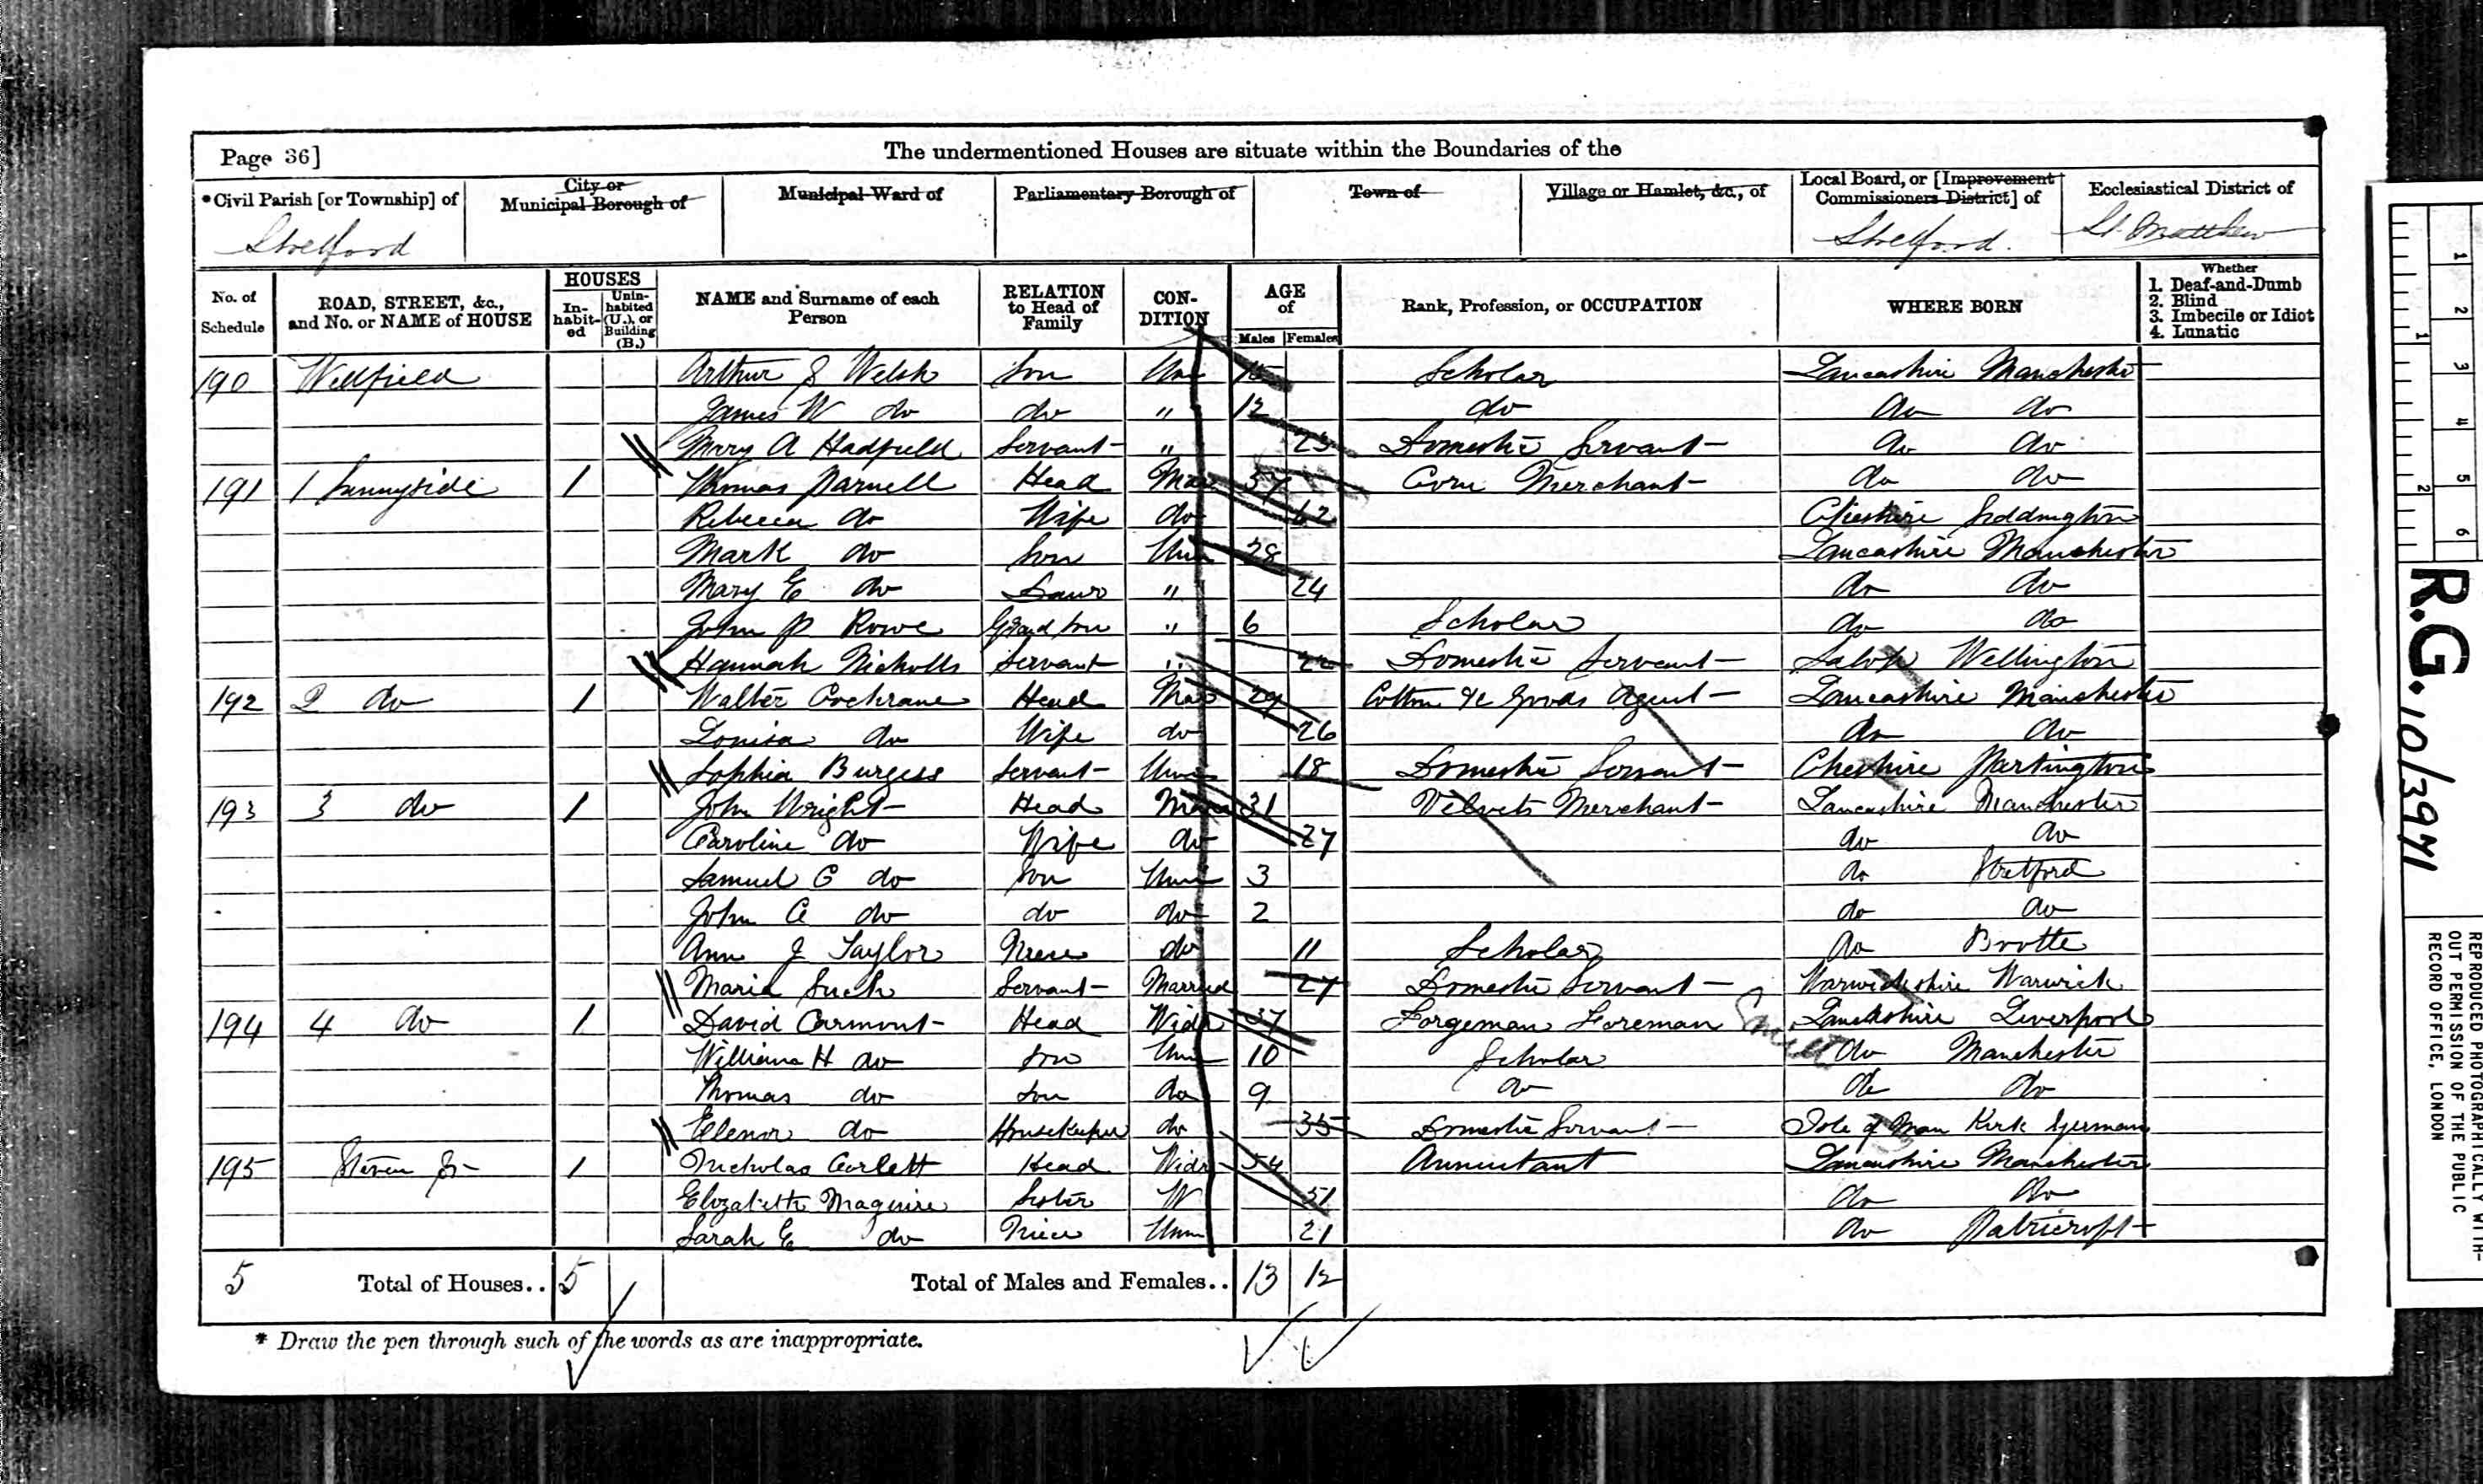 Page 36] The undermentioned Houses are situate within the Boundaries of the
*Civil Parish [or Township] of City or Municipal Borough of Municipal Ward of Parliamentary Borough of Town of Village or Hamlet, &c., of Local Board, or [Improvement Commissioners District] of Ecclesiastical District of
Stretford Stretford. St. Matthew
No. of Schedule ROAD, STREET, &c., and No. or NAME of HOUSE HOUSES In-habit-ed Unin-habited (U.), or Building (B.) NAME and Surname of each Person RELATION to Head of Family CON-DITION AGE of Males Females Rank, Profession, or OCCUPATION WHERE BORN Whether 1. Deaf-and-Dumb 2. Blind 3. Imbecile or Idiot 4. Lunatic
190 Wellfield Arthur J Welsh Son Unm 15 Scholar Lancashire Manchester
James W do do " 12 do do do
Mary A Hadfield Servant " 23 Domestic Servant do do
191 1 Sunnyside 1 Thomas Parnell Head Mar 57 Corn Merchant do do
Rebecca do Wife do 62 Cheshire Siddington
Mark do Son Unm 28 Lancashire Manchester
Mary E do Daur " 24 do do
John P Rowe Grand Son " 6 Scholar do do
Hannah Nicholls Servant " Domestic Servant Salop Wellington
192 2 do 1 Walter Cochrane Head Mar 29 Cotton &c Goods Agent Lancashire Manchester
Louisa do Wife do 26 do do
Sophia Burgess Servant Unm 18 Domestic Servant Cheshire Partington
193 3 do 1 John Wright Head Mar 31 Velvets Merchant Lancashire Manchester
Caroline do Wife do 27 do do
Samuel C do Son Unm 3 do Stretford
John A do do do 2 do do
Ann J Taylor Niece do 11 Scholar do Bootle
Maria Such Servant Married 27 Domestic Servant Warwickshire Warwick
194 4 do 1 David Carmont Head Widr 37 Forgeman Foreman Lancashire Liverpool
William H do Son Unm 10 Scholar do Manchester
Thomas do Son do 9 do do do
Elenor do Housekeeper do 35 Domestic Servant Isle of Man Kirk German
195 1 Nicholas Corlett Head Widr 54 Annuitant Lancashire Manchester
Elizabeth Maguire Sister W 51 do do
Sarah E do Niece Unm 21 do Patricroft
5 Total of Houses.. 5 Total of Males and Females.. 13 12
* Draw the pen through such of the words as are inappropriate.
1 2 3 4 5 6
1 2
R.G. 10/3971
REPRODUCED PHOTOGRAPHICALLY WITH-
OUT PERMISSION OF THE PUBLIC
RECORD OFFICE, LONDON